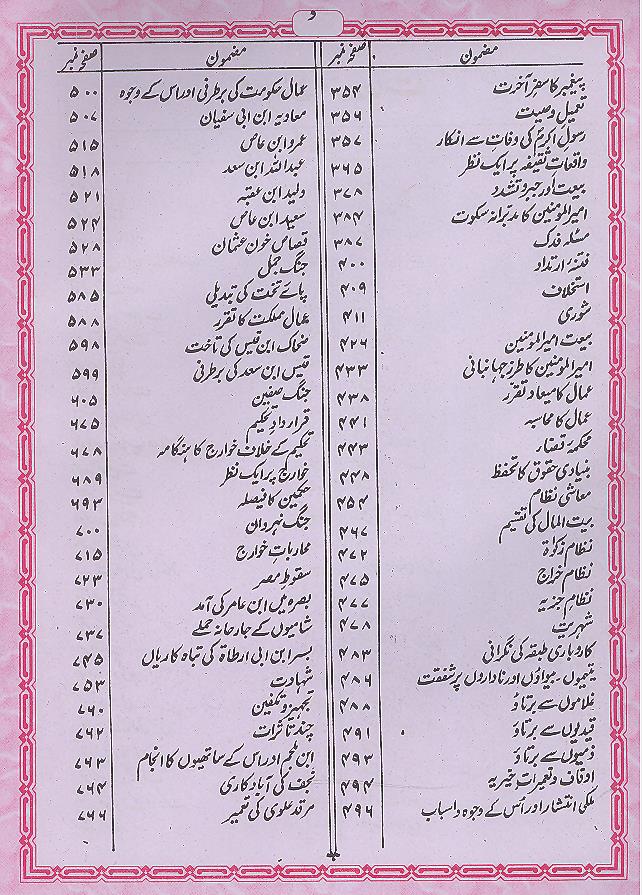 و
مضمون صفحہ نمبر
پیغمبر کا سفر آخرت ۳۵۴
تعمیل وصیت ۳۵۶
رسول اکرمؐ کی وفات سے انکار ۳۵۷
واقعات ثقیفہ پر ایک نظر ۳۶۵
بیعت اور جبر و تشدد ۳۷۸
امیر المومنین کا مدبرانہ سکوت ۳۸۴
مسئلہ فدک ۳۸۷
فتنۂ ارتداد ۴۰۰
استخلاف ۴۰۹
شوریٰ ۴۱۱
بیعت امیر المومنین ۴۲۶
امیر المومنین کا طرز جہانبانی ۴۳۳
عمال کا میعاد تقرر ۴۳۸
عمال کا محاسبہ ۴۴۱
محکمہ قضاء ۴۴۳
بنیادی حقوق کا تحفظ ۴۴۸
معاشی نظام ۴۵۴
بیت المال کی تقسیم ۴۶۷
نظام زکوٰۃ ۴۷۲
نظام خراج ۴۷۵
نظام جزیہ ۴۷۷
شہریت ۴۷۸
کاروباری طبقہ کی نگرانی ۴۸۳
یتیموں۔ بیواؤں اور ناداروں پر شفقت ۴۸۶
غلاموں سے برتاؤ ۴۸۸
قیدیوں سے برتاؤ ۴۹۱
ذمیوں سے برتاؤ ۴۹۳
اوقاف و تعمیرات خیریہ ۴۹۴
ملکی انتشار اور اُس کے وجوہ و اسباب ۴۹۶
مضمون صفحہ نمبر
عمال حکومت کی برطرفی اور اس کے وجوہ ۵۰۰
معاویہ ابن ابی سفیان ۵۰۷
عمرو ابن عاص ۵۱۵
عبد اللہ ابن سعد ۵۱۸
ولید ابن عقبہ ۵۲۱
سعید ابن عاص ۵۲۴
قصاص خون عثمان ۵۲۸
جنگ جمل ۵۳۳
پائے تخت کی تبدیلی ۵۸۵
عمال مملکت کا تقرر ۵۸۸
ضحاک ابن قیس کی تاخت ۵۹۸
قیس ابن سعد کی برطرفی ۵۹۹
جنگ صفین ۶۰۵
قرار دادِ تحکیم ۶۷۵
تحکیم کے خلاف خوارج کا ہنگامہ ۶۷۸
خوارج پر ایک نظر ۶۸۹
حکمین کا فیصلہ ۶۹۳
جنگ نہروان ۷۰۰
محاربات خوارج ۷۱۵
سقوط مصر ۷۲۳
بصرہ میں ابن عامر کی آمد ۷۳۰
شامیوں کے جارحانہ حملے ۷۳۷
بسر ابن ابی ارطاۃ کی تباہ کاریاں ۷۴۵
شہادت ۷۵۳
تجہیز و تکفین ۷۶۰
چند تاثرات ۷۶۲
ابن ملجم اور اس کے ساتھیوں کا انجام ۷۶۳
نجف کی آباد کاری ۷۶۴
مرقد علوی کی تعمیر ۷۶۶